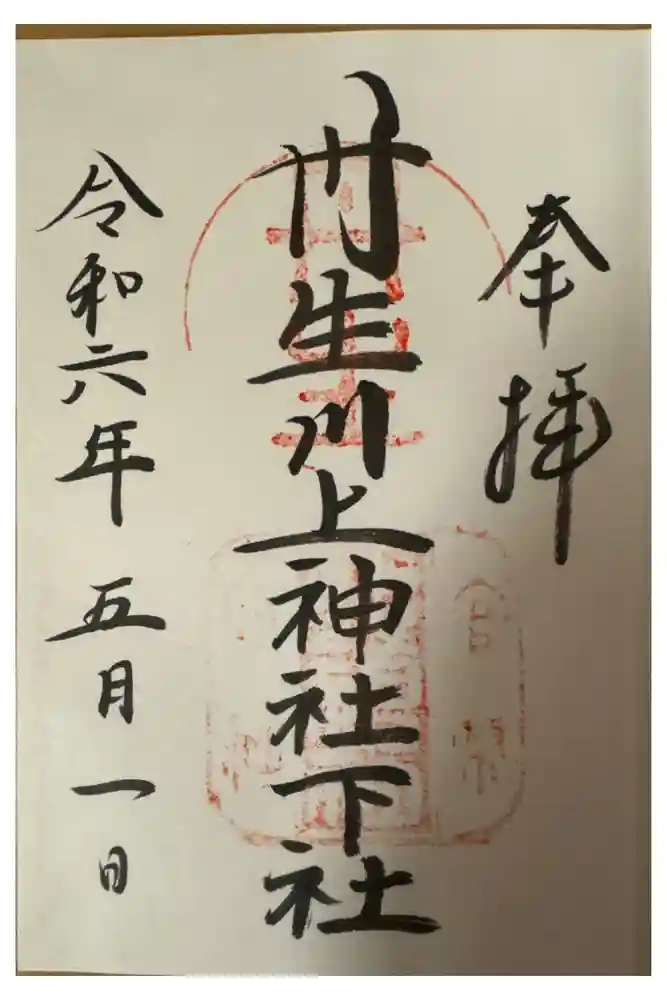 奉拝
丹生川上神社下社
令和六年五月一日